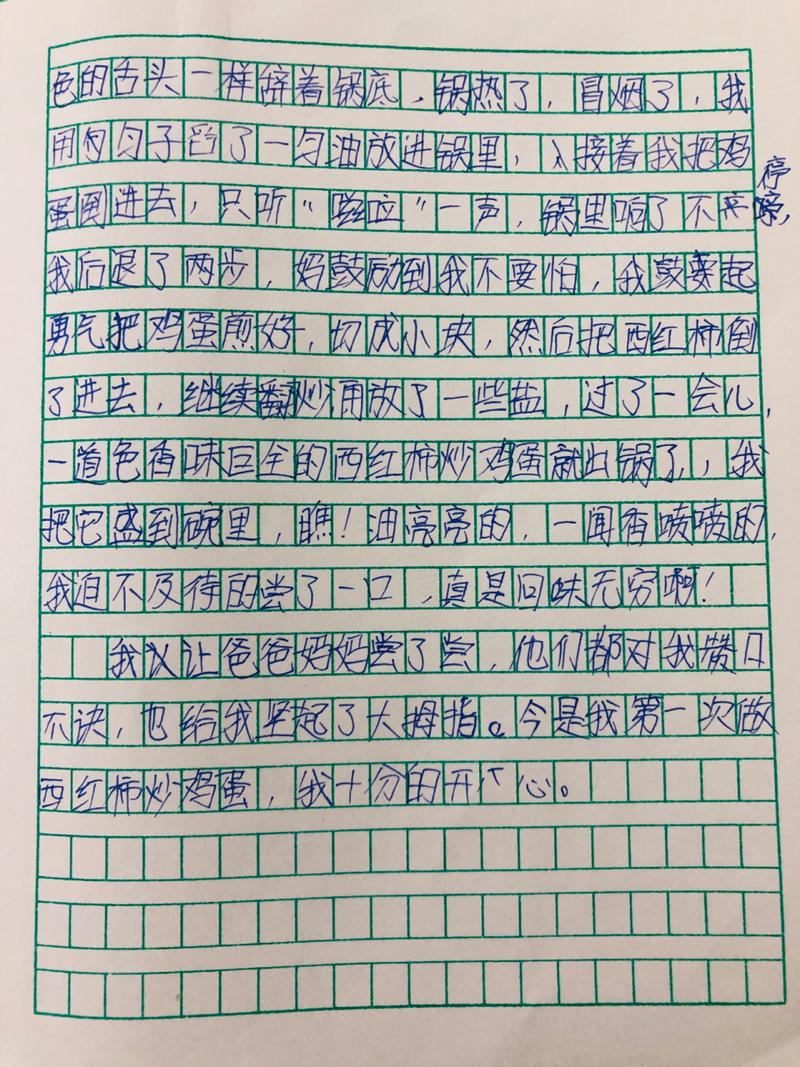 色的舌头一样辞着锅底，锅热了，冒烟了，我
用勺子舀了一勺油放进锅里，接着我把鸡
蛋倒进去，只听“嗞啦”一声，锅里响了不停
我后退了两步，妈鼓励到我不要怕，我鼓起
勇气把鸡蛋煎好，切成小块，然后把西红柿倒
了进去，继续翻炒再放了一些盐，过了一会儿，
一道色香味巨全的西红柿炒鸡蛋就出锅了，我
把它盛到碗里，瞧！油亮亮的，一闻香喷喷的，
我迫不及待的尝了一口，真是回味无穷啊！
我让爸爸妈妈尝了尝，他们都对我赞口
不诀，也给我坚起了大拇指。今是我第一次做
西红柿炒鸡蛋，我十分的开心。